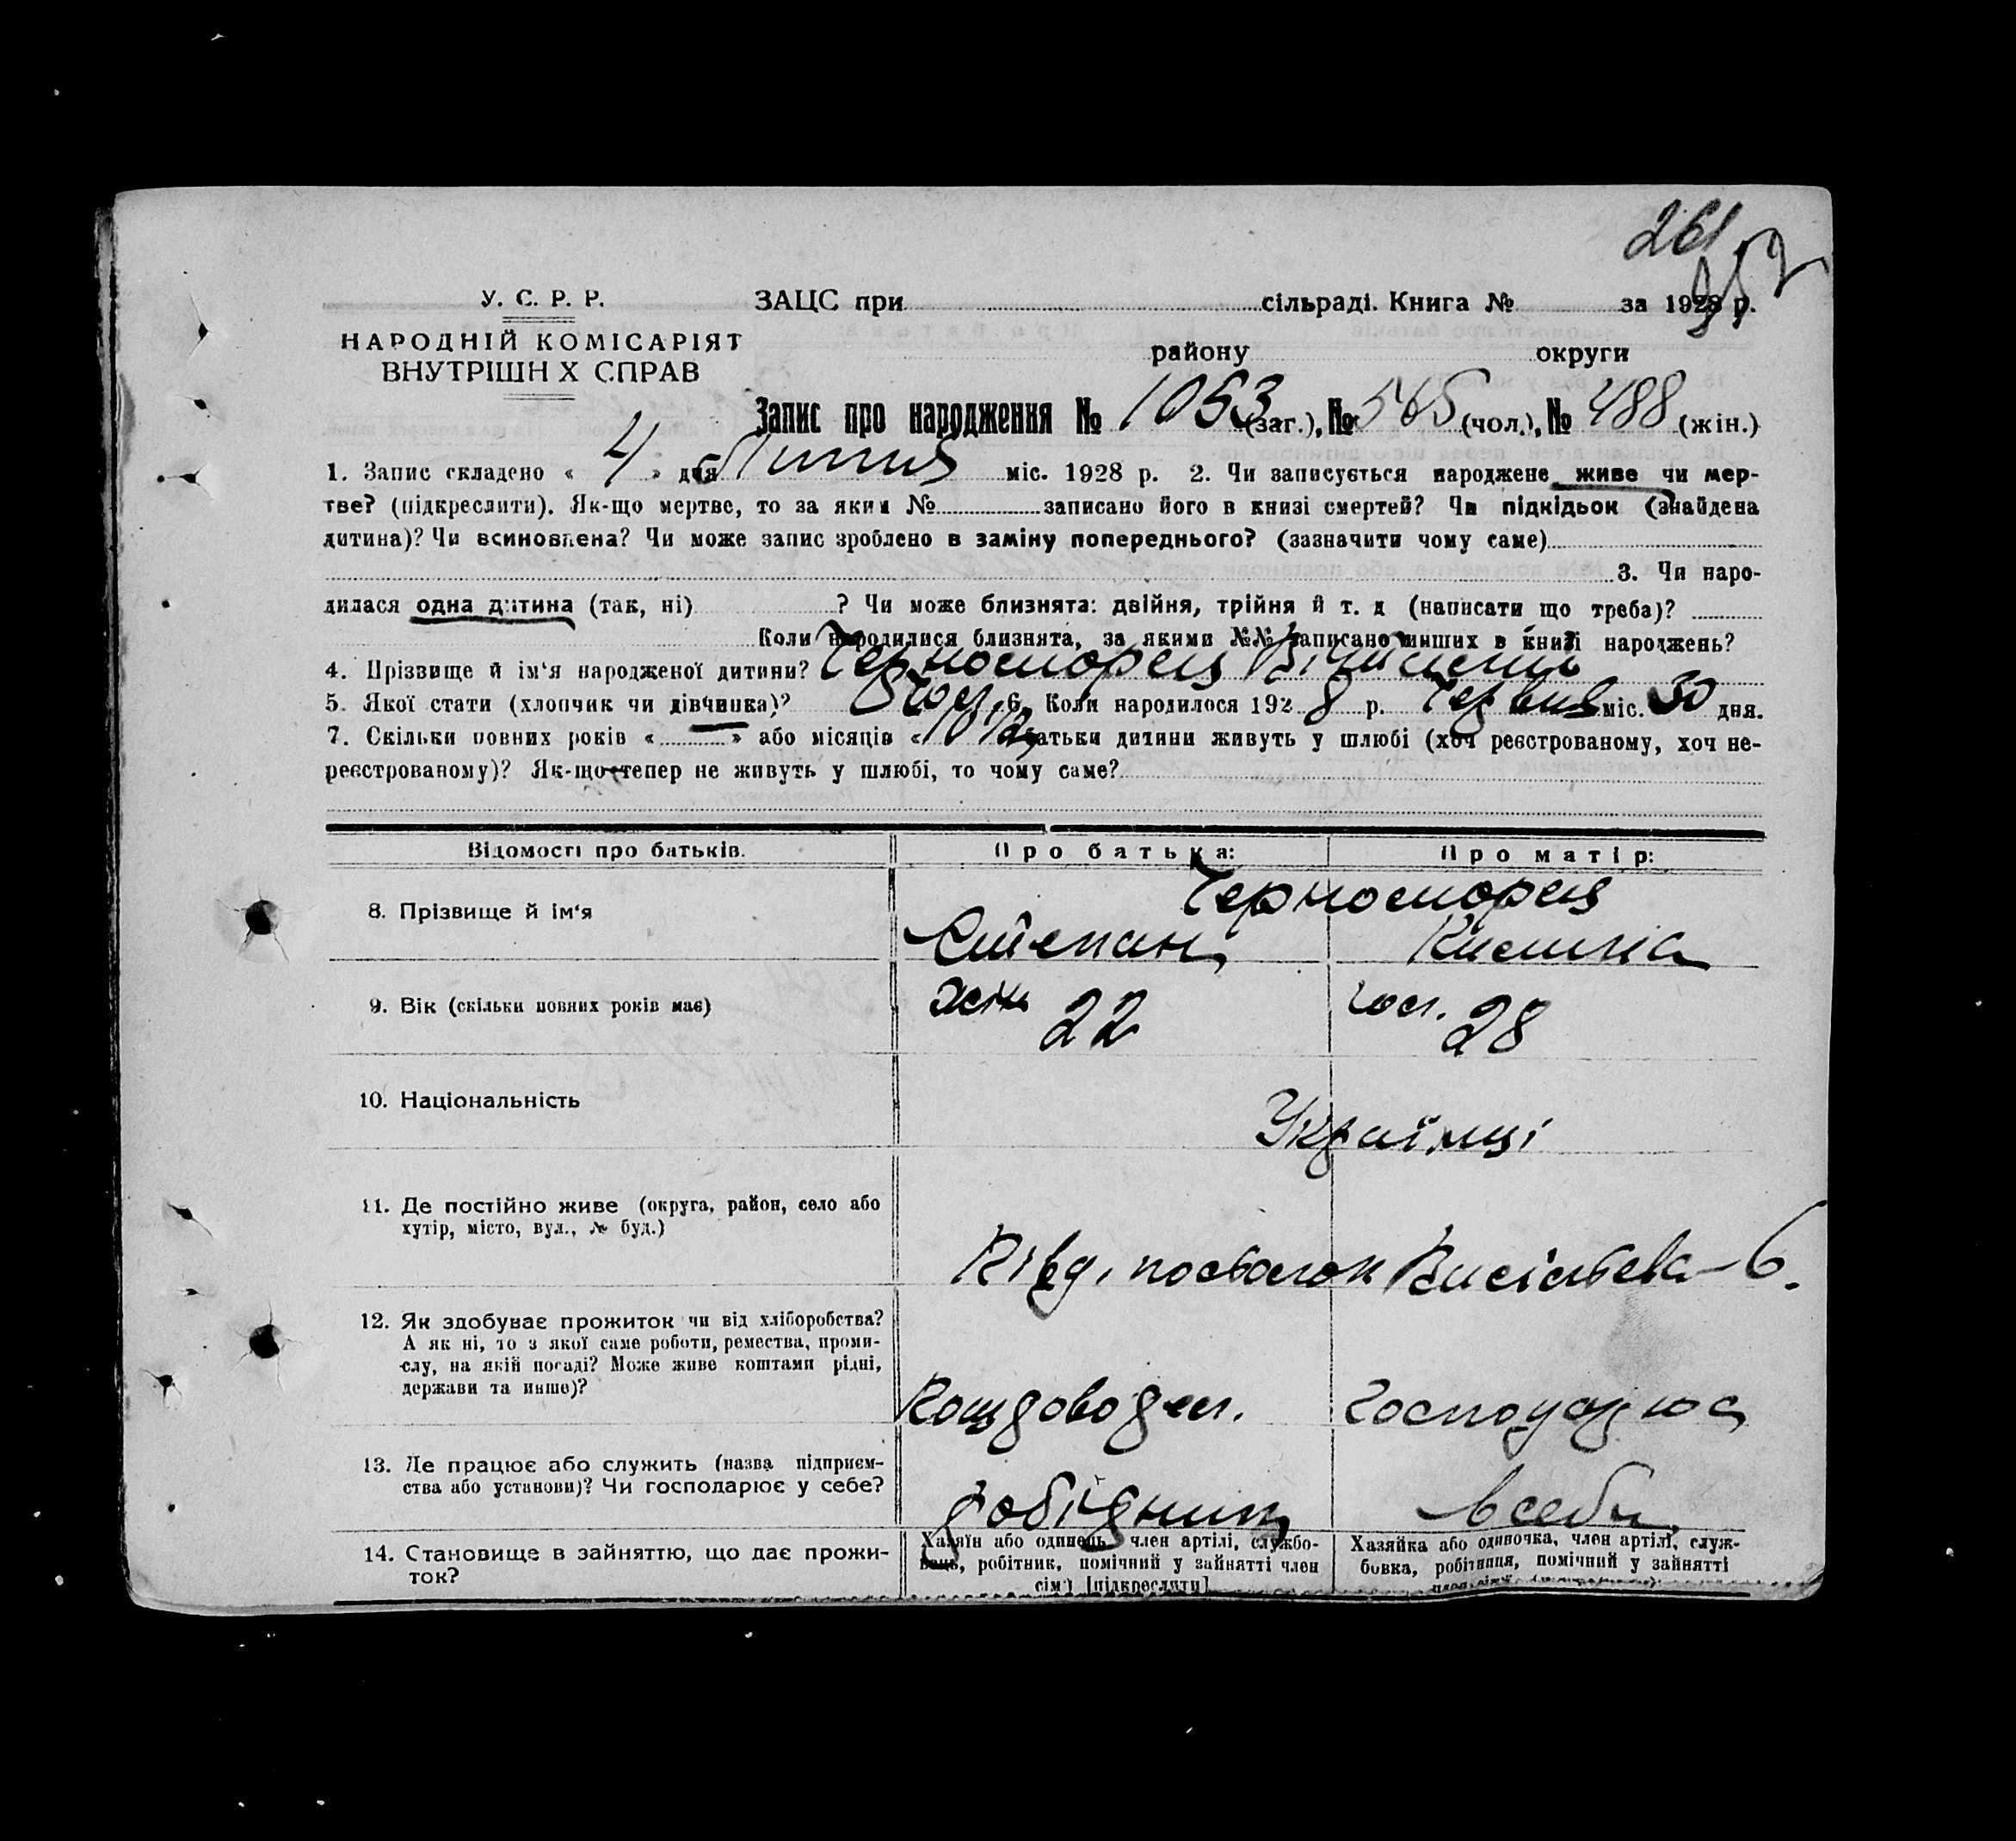 261
У. С. Р. Р.
ЗАЦС при сільраді. Книга № за 1928 р.
НАРОДНІЙ КОМІСАРІЯТ
ВНУТРІШН Х СПРАВ
району округи
Запис про народження № 1053 (заг.), № 565 (чол.), № 488 (жін.)
1. Запис складено « 4 » дня Липня міс. 1928 р. 2. Чи записується народжене живе чи мер-
тве? (підкреслити). Як-що мертве, то за яким № записано його в книзі смертей? Чи підкідьок (знайдена
дитина)? Чи всиновлена? Чи може запис зроблено в заміну попереднього? (зазначити чому саме)
3. Чи наро-
дилася одна дитина (так, ні) ? Чи може близнята: двійня, трійня й т. д (написати що треба)?
Коли народилися близнята, за якими №№ записано инших в книзі народжень?
4. Прізвище й ім‘я народженої дитини? Черноморец
5. Якої стати (хлопчик чи дівчинка)? 6. Коли народилося 192 8 р. Червня міс. 30 дня.
7. Скільки повних років « » або місяців « 10 1/2 батьки дитини живуть у шлюбі (хоч реєстрованому, хоч не-
реєстрованому)? Як-що тепер не живуть у шлюбі, то чому саме?
Відомості про батьків. Про батька: Про матір:
Черноморец
8. Прізвище й ім‘я Степан
9. Вік (скільки повних років має) 22 28
10. Національність Українці
11. Де постійно живе (округа, район, село або
хутір, місто, вул., № буд.)
посьолок 6.
12. Як здобуває прожиток чи від хліборобства?
А як ні, то з якої саме роботи, ремества, проми-
слу, на якій посаді? Може живе коштами рідні,
держави та инше)?
13. Де працює або служить (назва підприєм-
ства або установи)? Чи господарює у себе?
робідник всеби
14. Становище в зайняттю, що дає прожи-
ток?
Хазяїн або одинець, член артілі, службо-
вець, робітник, помічний у зайнятті член
сім'ї [підкреслити]
Хазяйка або одиночка, член артілі, служ-
бовка, робітниця, помічний у зайнятті